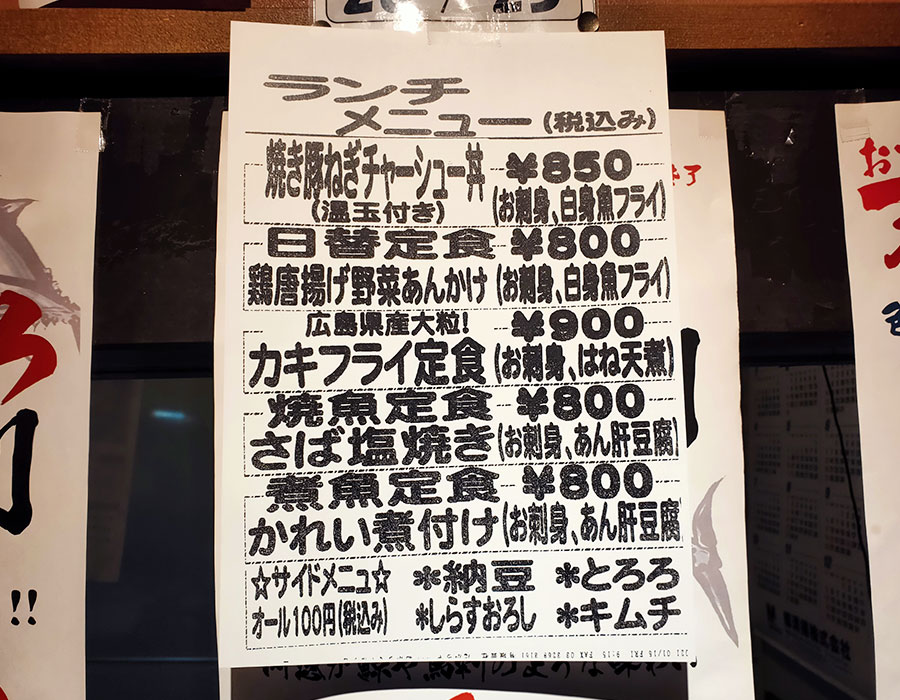 ランチ
メニュー(税込み)
焼き豚ねぎチャーシュー丼 ¥850
(温玉付き) (お刺身、白身魚フライ)
日替定食 ¥800
鶏唐揚げ野菜あんかけ (お刺身、白身魚フライ)
広島県産大粒! ¥900
カキフライ定食 (お刺身、はね天煮)
焼魚定食 ¥800
さば塩焼き (お刺身、あん肝豆腐)
煮魚定食 ¥800
かれい煮付け (お刺身、あん肝豆腐
☆サイドメニュ☆ *納豆 *とろろ
オール100円(税込み) *しらすおろし *キムチ
!!